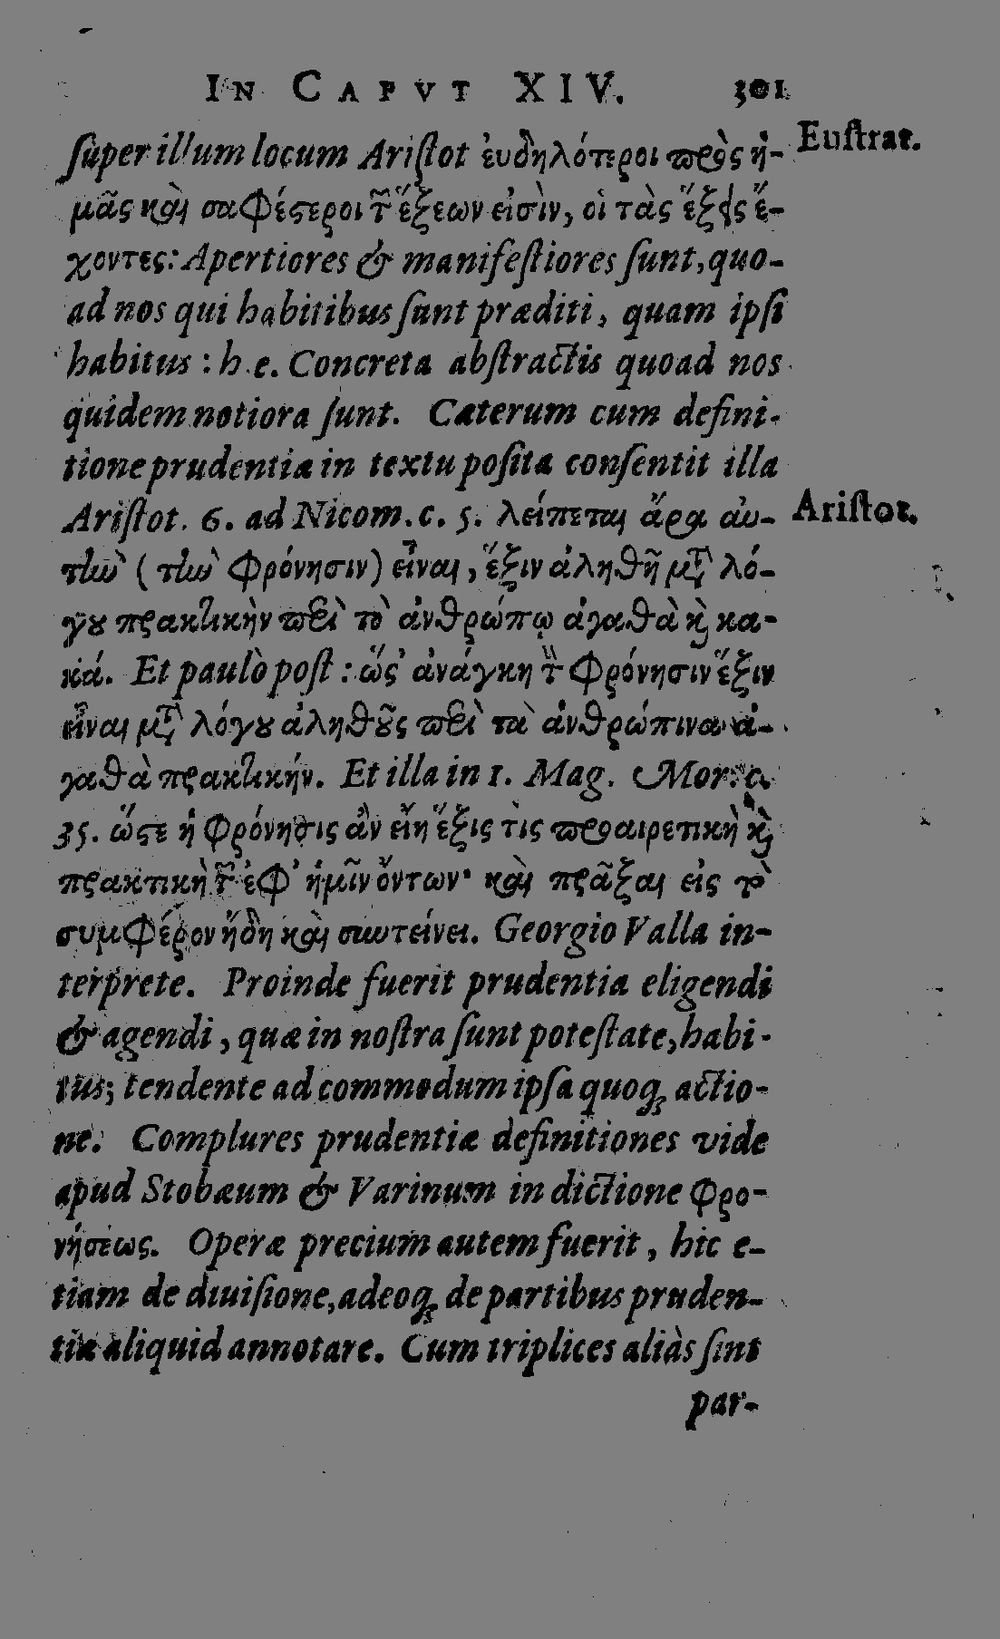 IN CAPVT XIV. 301
super illum locum Aristot ἐυδηλότεροι πρὸς ἡ- Eustrat.
μᾶς καὶ σαφέστεροι τῶν ἕξεων εἰσὶν, οἱ τὰς ἕξεις ἔ-
χοντες: Apertiores & manifestiores sunt, quo-
ad nos qui habitibus sunt præditi, quam ipsi
habitus: h. e. Concreta abstractis quoad nos
quidem notiora sunt. Cæterum cum defini-
tione prudentiæ in textu posita consentit illa
Aristot. 6. ad Nicom. c. 5. λείπεται ἄρα αυ- Aristot.
τὴν (τὴν φρόνησιν) εἶναι, ἕξιν ἀληθῆ μετὰ λό-
γου πρακτικὴν περὶ τὸ ἀνθρώπῳ ἀγαθὰ καὶ κα-
κά. Et paulò post: ὥστ' ἀνάγκη τὴν φρόνησιν ἕξιν
εἶναι μετὰ λόγου ἀληθοῦς περὶ τὰ ἀνθρώπινα ἀ-
γαθὰ πρακτικήν. Et illa in 1. Mag. Mor. c.
35. ὥστε ἡ φρόνησις ἂν εἴη ἕξις τὶς προαιρετικὴ καὶ
πρακτικὴ τῶν ἐφ' ἡμῖν ὄντων· καὶ πρᾶξαι εἰς τὸ
συμφέρον ἤδη καὶ συντείνει. Georgio Valla in-
terprete. Proinde fuerit prudentia eligendi
& agendi, quæ in nostra sunt potestate, habi-
tus; tendente ad commodum ipsa quoq; actio-
ne. Complures prudentiæ definitiones vide
apud Stobæum & Varinum in dictione φρο-
νήσεως. Operæ precium autem fuerit, hic e-
tiam de diuisione, adeoq; de partibus pruden-
tiæ aliquid annotare. Cum triplices aliàs sint
par-